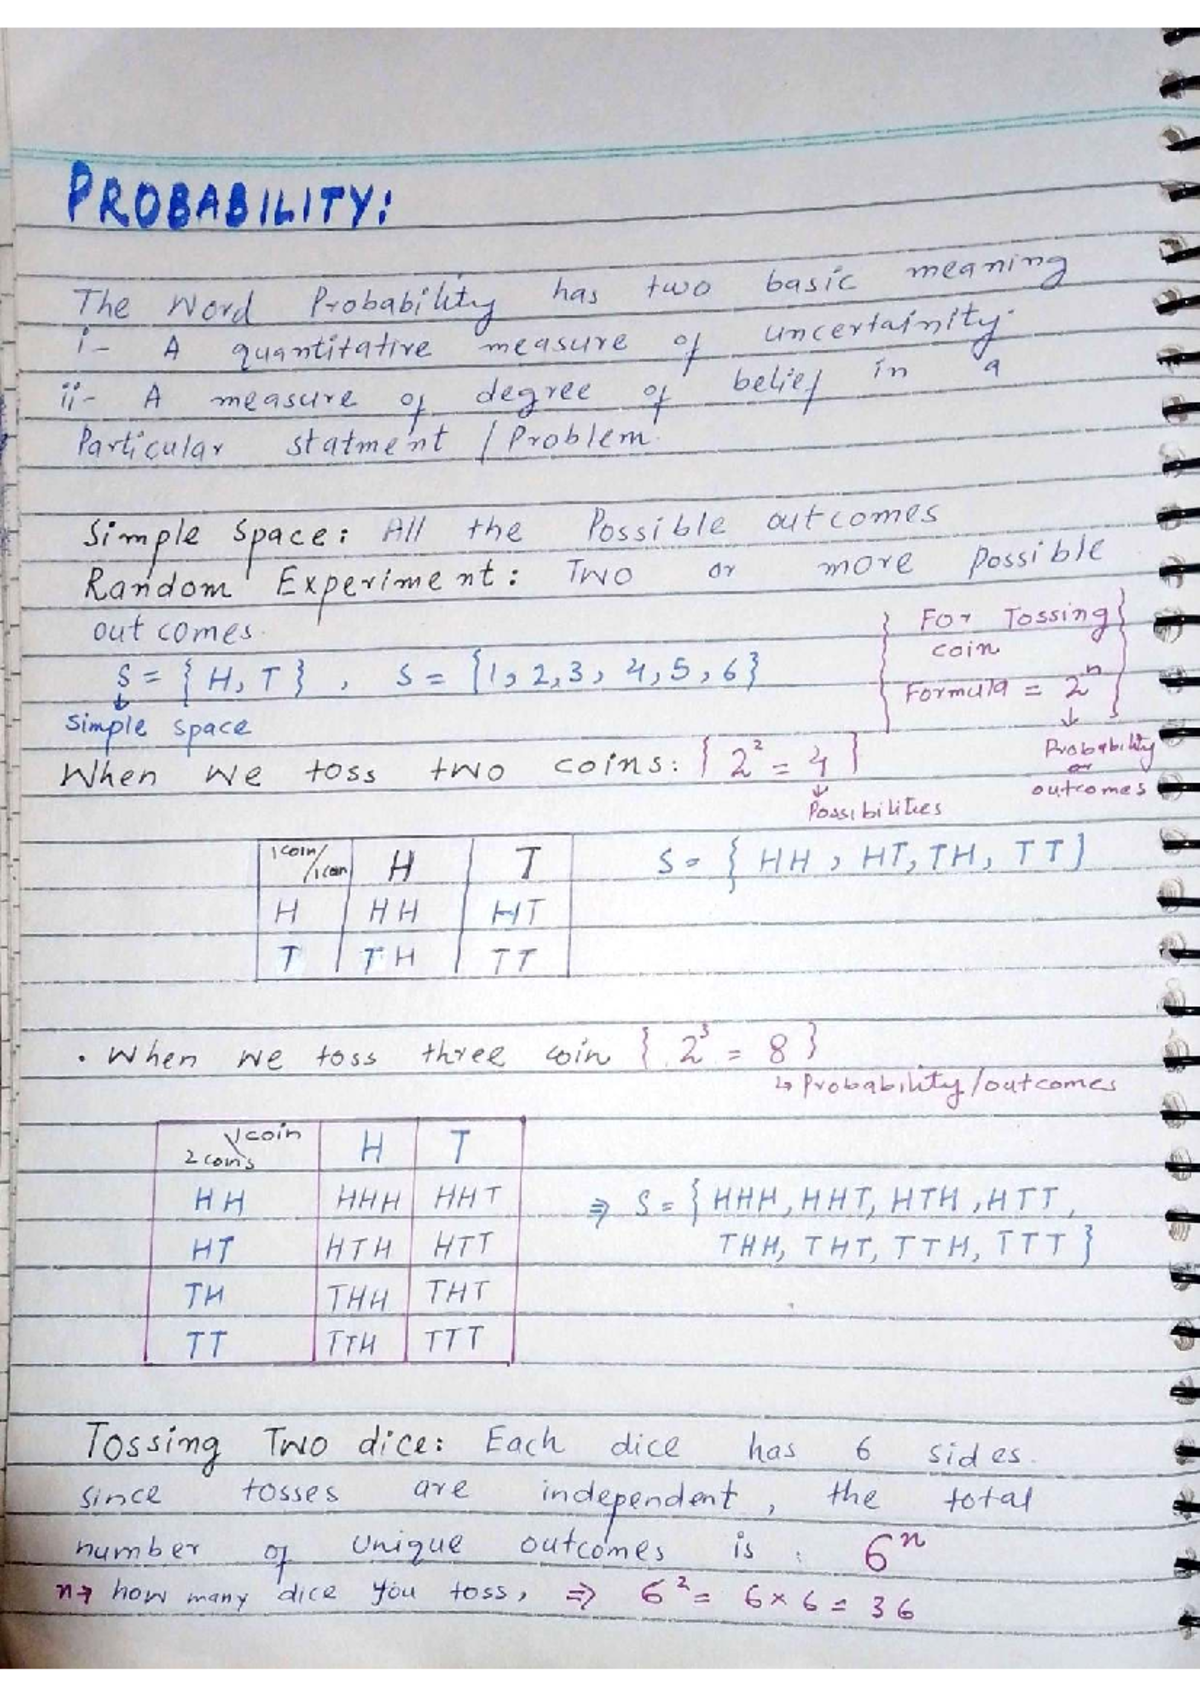 PROBABILITY:
The Word Probability has two basic meaning
i- A quantitative measure of uncertainity.
ii- A measure of degree of belief in a
Particular statment / Problem.
Simple Space: All the Possible outcomes
Random Experiment: Two or more possible
outcomes.
{ For Tossing }
coin
Formula = 2ⁿ
↓
Probability
or
outcomes
S = { H, T } , S = {1, 2, 3, 4, 5, 6}
↓
Simple space
When we toss two coins: { 2² = 4 }
↓
Possibilities
1 coin/1 coin H T
H HH HT
T TH TT
S = { HH, HT, TH, TT }
. When we toss three coin { 2³ = 8 }
↳ Probability/outcomes
1 coin
2 coins H T
HH HHH HHT
HT HTH HTT
TH THH THT
TT TTH TTT
⇒ S = { HHH, HHT, HTH, HTT,
THH, THT, TTH, TTT }
Tossing Two dice: Each dice has 6 sides.
since tosses are independent, the total
number of Unique outcomes is : 6ⁿ
n→ how many dice you toss, ⇒ 6² = 6 x 6 = 36